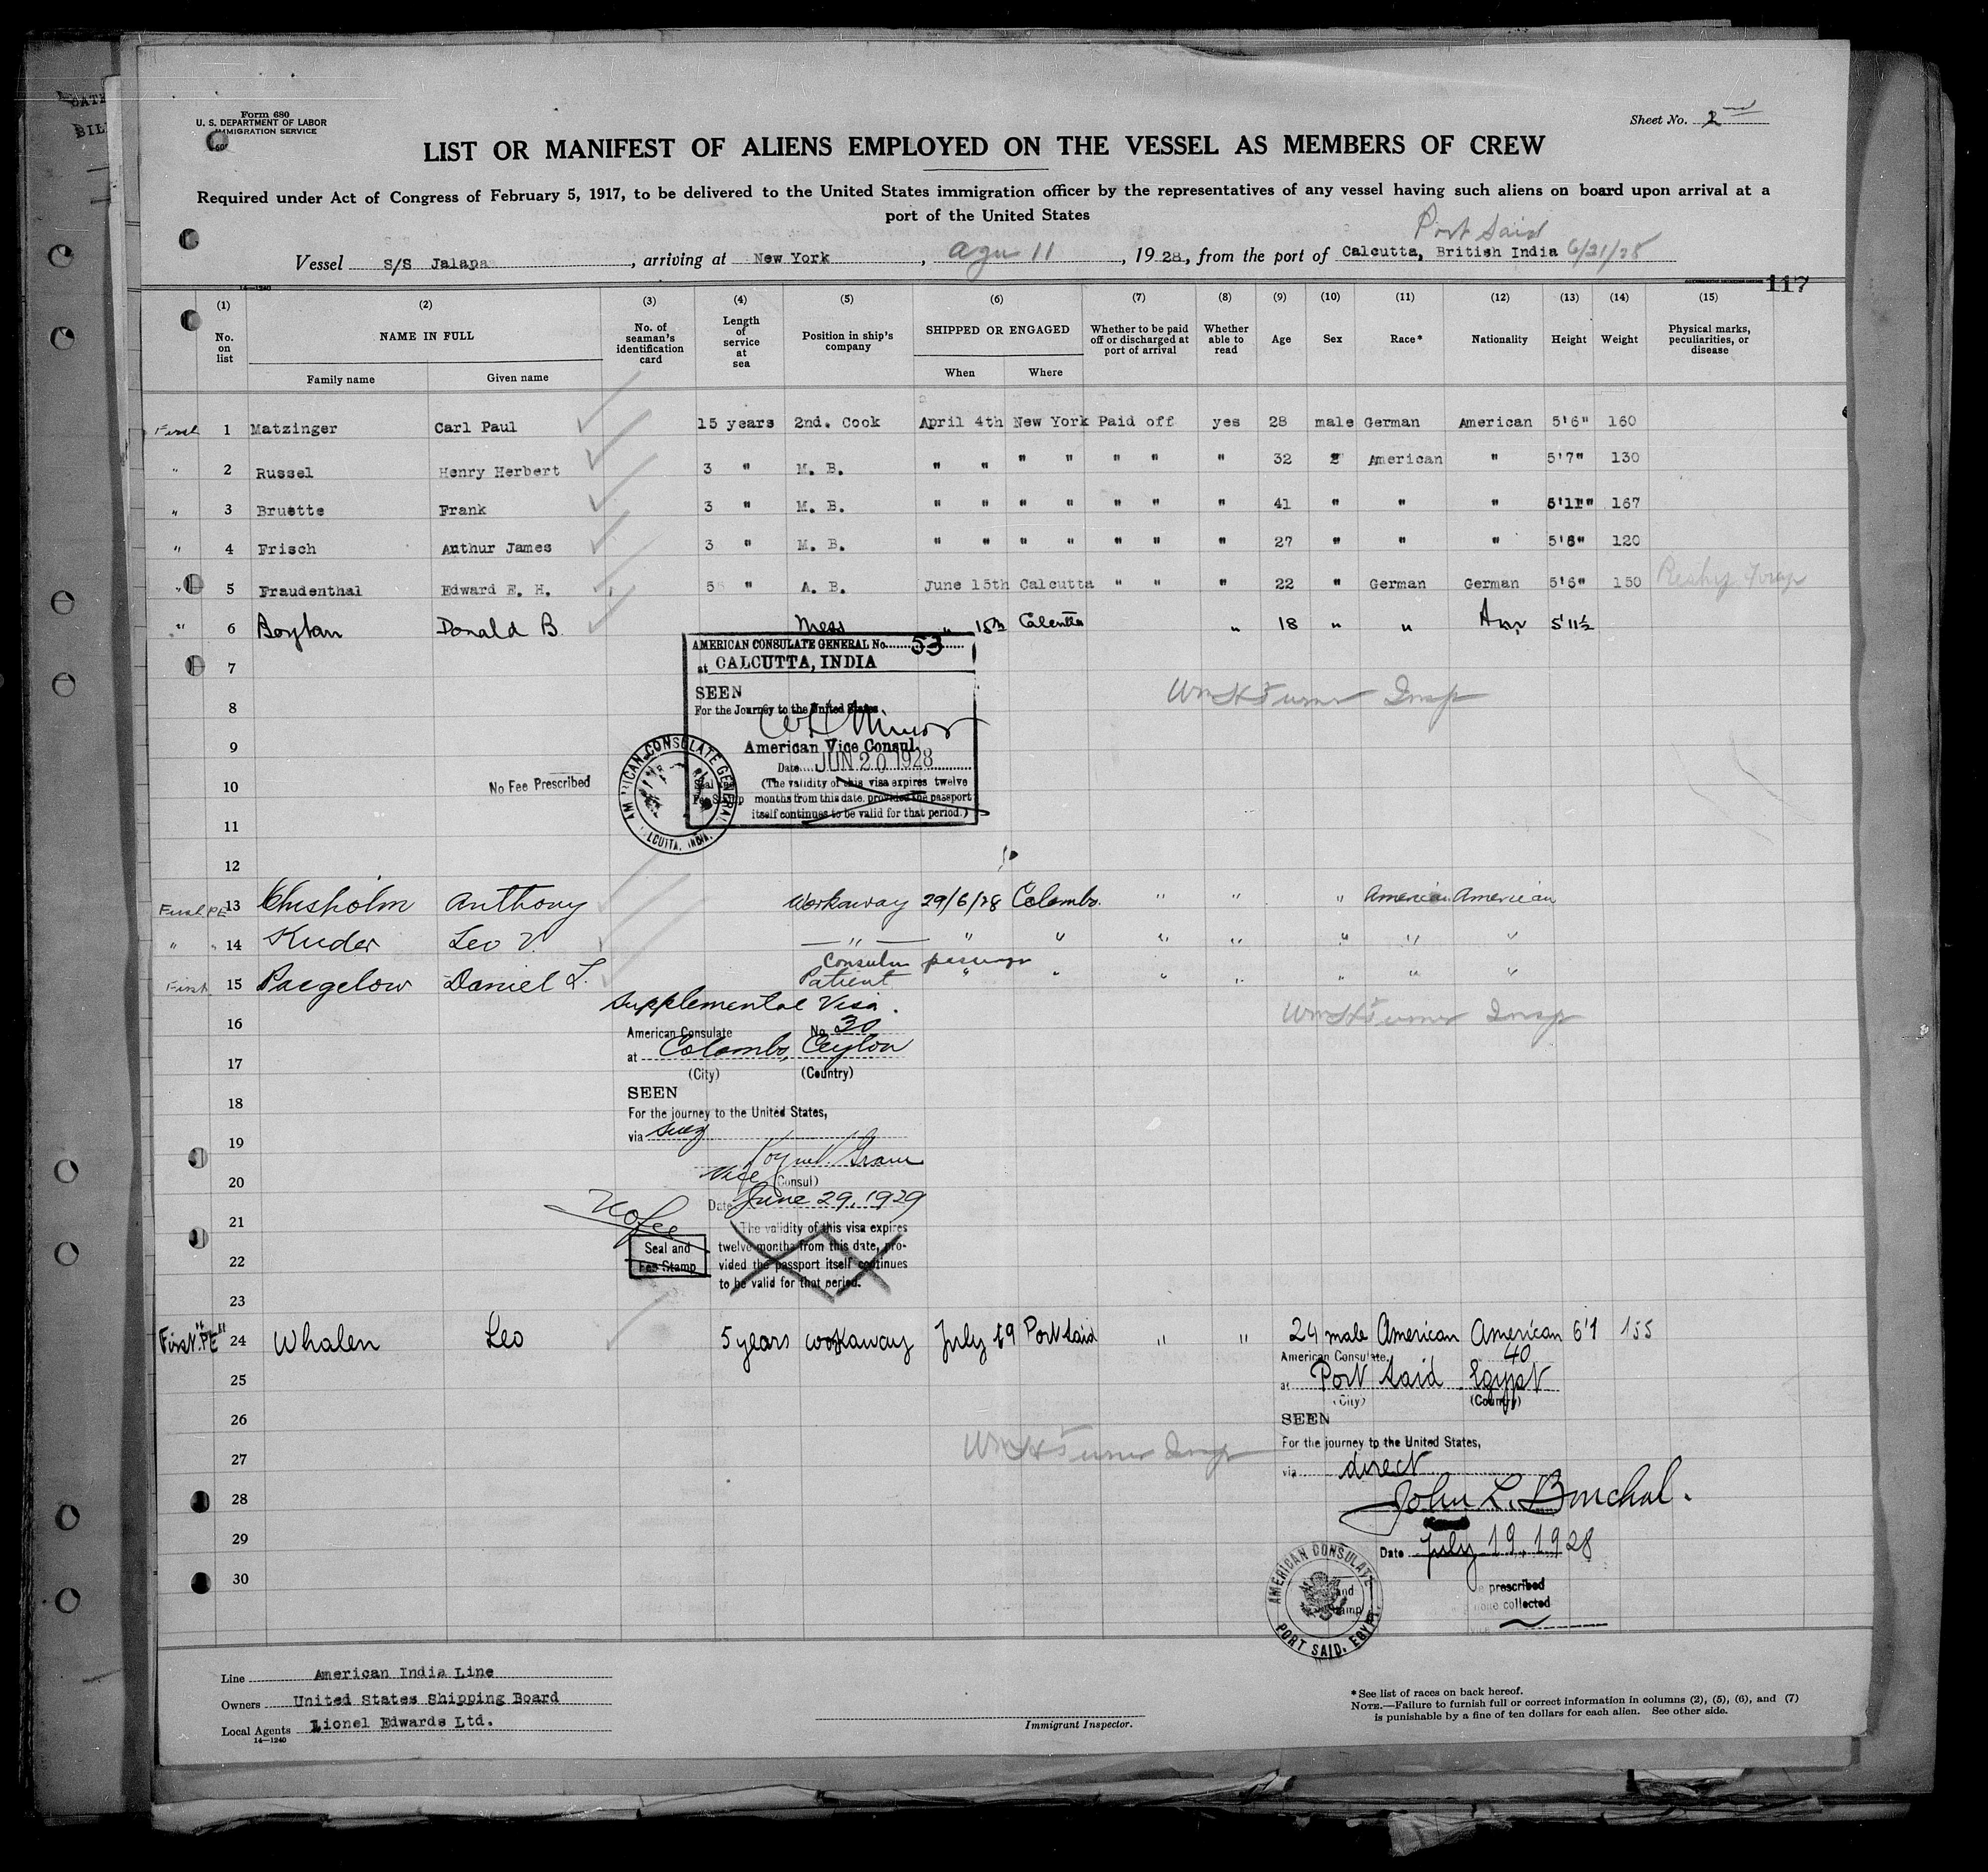 Form 680
U. S. DEPARTMENT OF LABOR
IMMIGRATION SERVICE
Sheet No. 2nd
LIST OR MANIFEST OF ALIENS EMPLOYED ON THE VESSEL AS MEMBERS OF CREW
Required under Act of Congress of February 5, 1917, to be delivered to the United States immigration officer by the representatives of any vessel having such aliens on board upon arrival at a
port of the United States
Port Said
Vessel S/S Jalapa, arriving at New York, 11, 1928, from the port of Calcutta, British India 6/21/28
14—1240
117
(1) (2) (3) (4) (5) (6) (7) (8) (9) (10) (11) (12) (13) (14) (15)
No. on list NAME IN FULL No. of seaman's identification card Length of service at sea Position in ship's company SHIPPED OR ENGAGED Whether to be paid off or discharged at port of arrival Whether able to read Age Sex Race* Nationality Height Weight Physical marks, peculiarities, or disease
Family name Given name When Where
First 1 Matzinger Carl Paul 15 years 2nd. Cook April 4th New York Paid off yes 28 male German American 5'6" 160
" 2 Russel Henry Herbert 3 " M. B. " " " " " " " 32 " American " 5'7" 130
" 3 Bruette Frank 3 " M. B. " " " " " " " 41 " " " 5'11" 167
" 4 Frisch Anthur James 3 " M. B. " " " " " " " 27 " " " 5'6" 120
" 5 Fraudenthal Edward E. H. 5 " A. B. June 15th Calcutta " " " 22 " German German 5'6" 150
" 6 Boylan Donald B. Mess " 15th Calcutta " 18 " " Amr 5'11½
7
AMERICAN CONSULATE GENERAL No. 53
at CALCUTTA, INDIA
SEEN
For the Journey to the United States
8 Wm H Turner Insp
Minor
9 American Vice Consul
Date JUN 20 1928
10 No Fee Prescribed
(The validity of this visa expires twelve
months from this date, provided the passport
itself continues to be valid for that period.)
Seal and
Fee Stamp
AMERICAN CONSULATE GENERAL
CALCUTTA, INDIA.
11
12
First PE 13 Chisholm Anthony Workaway 29/6/28 Colombo. " " " American American
" " 14 Kuder Leo V. " " " " " " " "
Consular passenger
First 15 Paegelow Daniel L. Patient " " " " " " "
Supplemental Visa.
16 Wm H Turner Insp
American Consulate No. 30
at Colombo, Ceylon
17
(City) (Country)
SEEN
18
For the journey to the United States,
via Suez
19
20
Vice (Consul)
Date June 29, 1929
21 No fee
The validity of this visa expires
twelve months from this date, pro-
vided the passport itself continues
to be valid for that period.
Seal and
Fee Stamp
22
23
First "PE" 24 Whalen Leo 5 years workaway July 19 Port Said " " 24 male American American 6'1 155
American Consulate 40
25 at Port Said Egypt
(City) (Country)
26 SEEN
For the journey to the United States,
27 Wm H Turner Insp
via direct
28 John L.
29 Date July 19, 1928
30
AMERICAN CONSULATE
PORT SAID, EGYPT.
prescribed
none collected
Line American India Line
Owners United States Shipping Board
Local Agents Lionel Edwards Ltd.
14—1240
Immigrant Inspector.
*See list of races on back hereof.
NOTE.—Failure to furnish full or correct information in columns (2), (5), (6), and (7)
is punishable by a fine of ten dollars for each alien. See other side.